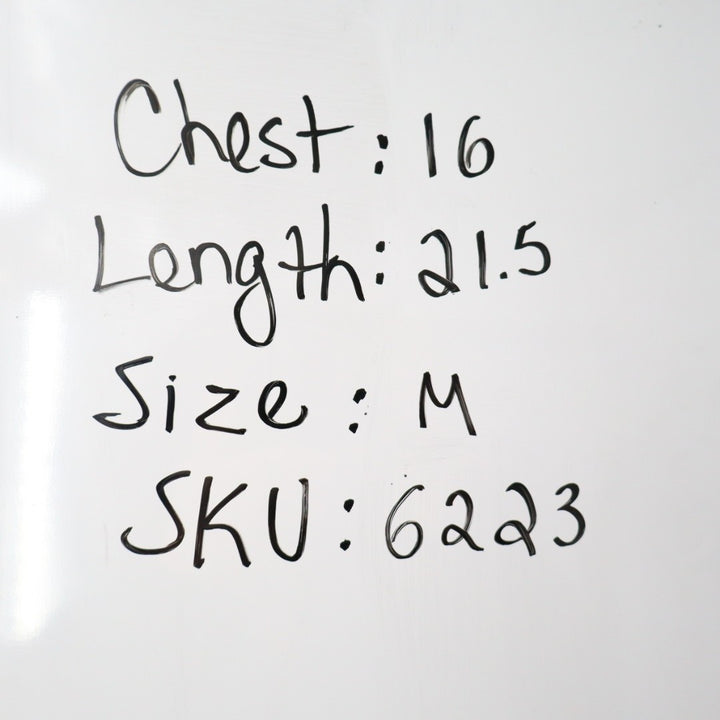 Chest: 16
Length: 21.5
Size: M
SKU: 6223